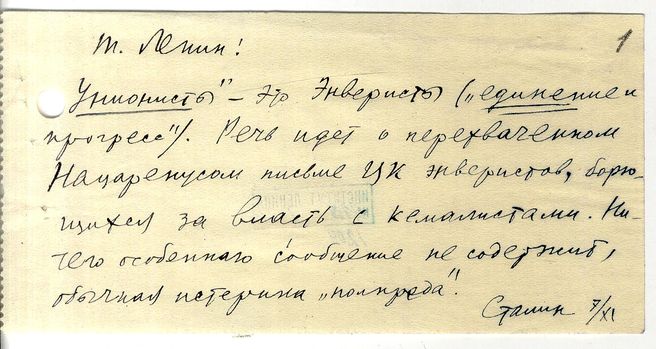 т. Ленин!
1
Унионисты" – это Энверисты („единение и
прогресс"). Речь идет о перехваченном
Нацаренусом письме ЦК энверистов, борю-
щихся за власть с кемалистами. Ни-
чего особенного сообщение не содержит,
обычная истерика „полпреда".
Сталин 7/XI